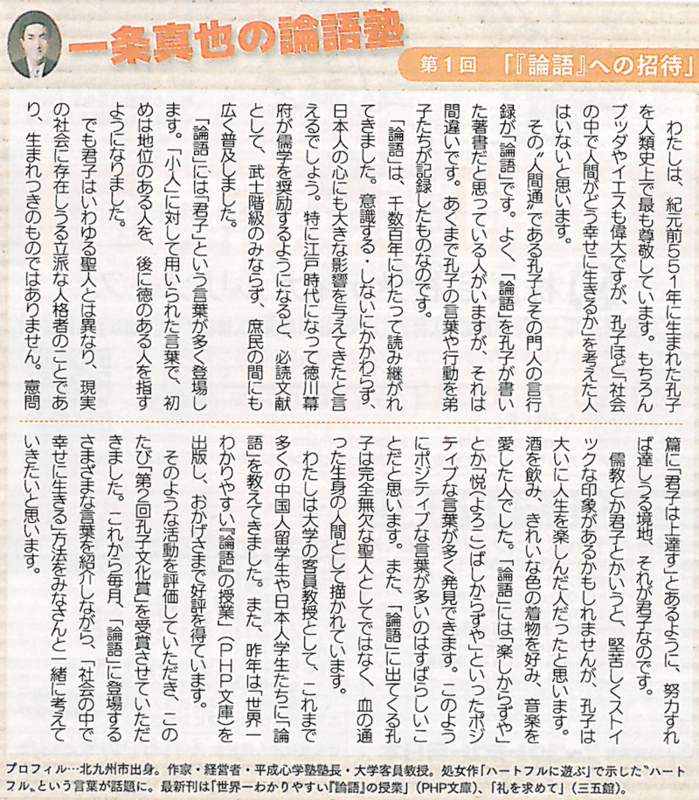 一条真也の論語塾
第1回 「『論語』への招待」
わたしは、紀元前551年に生まれた孔子
を人類史上で最も尊敬しています。もちろん
ブッダやイエスも偉大ですが、孔子ほど「社会
の中で人間がどう幸せに生きるか」を考えた人
はいないと思います。
その〝人間通〟である孔子とその門人の言行
録が「論語」です。よく、「論語」を孔子が書い
た著書だと思っている人がいますが、それは
間違いです。あくまで孔子の言葉や行動を弟
子たちが記録したものなのです。
「論語」は、千数百年にわたって読み継がれ
てきました。意識する・しないにかかわらず、
日本人の心にも大きな影響を与えてきたと言
えるでしょう。特に江戸時代になって徳川幕
府が儒学を奨励するようになると、必読文献
として、武士階級のみならず、庶民の間にも
広く普及しました。
「論語」には「君子」という言葉が多く登場し
ます。「小人」に対して用いられた言葉で、初
めは地位のある人を、後に徳のある人を指す
ようになりました。
でも君子はいわゆる聖人とは異なり、現実
の社会に存在しうる立派な人格者のことであ
り、生まれつきのものではありません。憲問
篇に「君子は上達す」とあるように、努力すれ
ば達しうる境地、それが君子なのです。
儒教とか君子とかいうと、堅苦しくストイ
ックな印象があるかもしれませんが、孔子は
大いに人生を楽しんだ人だったと思います。
酒を飲み、きれいな色の着物を好み、音楽を
愛した人でした。「論語」には「楽しからずや」
とか「悦(よろこ)ばしからずや」といったポジ
ティブな言葉が多く発見できます。このよう
にポジティブな言葉が多いのはすばらしいこ
とだと思います。また、「論語」に出てくる孔
子は完全無欠な聖人としてではなく、血の通
った生身の人間として描かれています。
わたしは大学の客員教授として、これまで
多くの中国人留学生や日本人学生たちに「論
語」を教えてきました。また、昨年は「世界一
わかりやすい『論語』の授業」(PHP文庫)を
出版し、おかげさまで好評を得ています。
そのような活動を評価していただき、この
たび「第2回孔子文化賞」を受賞させていただ
きました。これから毎月、「論語」に登場する
さまざまな言葉を紹介しながら、「社会の中で
幸せに生きる」方法をみなさんと一緒に考えて
いきたいと思います。
プロフィル…北九州市出身。作家・経営者・平成心学塾塾長・大学客員教授。処女作「ハートフルに遊ぶ」で示した〝ハート
フル〟という言葉が話題に。最新刊は「世界一わかりやすい『論語』の授業」(PHP文庫)、「礼を求めて」(三五館)。